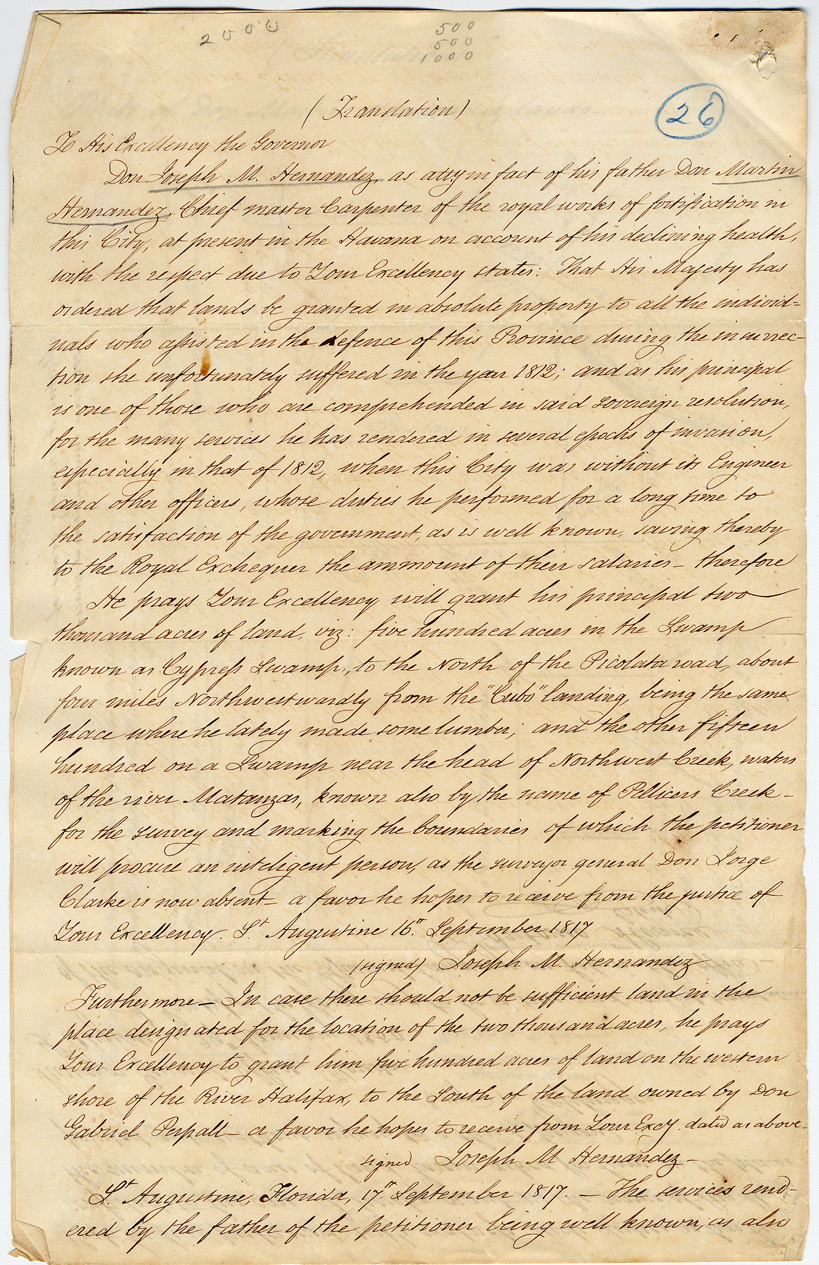 2000
500
500
1000
(Translation)
26
To His Excellency the Governor
Don Joseph M. Hernandez, as atty in fact of his father Don Martin
Hernandez, Chief master Carpenter of the royal works of fortification in
this City, at present in the Havana on account of his declining health,
with the respect due to Your Excellency states: That His Majesty has
ordered that lands be granted in absolute property to all the individ-
uals who assisted in the defence of this Province during the insurrec-
tion she unfortunately suffered in the year 1812; and as his principal
is one of those who are comprehended in said sovereign resolution,
for the many services he has rendered in several epochs of invasion,
especially in that of 1812, when this City was without its Engineer
and other officers, whose duties he performed for a long time to
the satisfaction of the government, as is well known, saving thereby
to the Royal Exchequer the ammount of their salaries – therefore
He prays Your Excellency will grant his principal two
thousand acres of land, viz: five hundred acres in the Swamp
known as Cypress Swamp, to the North of the Picolata road, about
four miles Northwestwardly from the "Cubo" landing, being the same
place where he lately made some lumber; and the other fifteen
hundred on a Swamp near the head of Northwest Creek, waters
of the river Matanzas, known also by the name of Pellicers Creek –
for the survey and marking the boundaries of which the petitioner
will procure an inteligent person, as the surveyor general Don Jorge
Clarke is now absent – a favor he hopes to receive from the justice of
Your Excellency. St Augustine 16th September 1817
(signed) Joseph M. Hernandez
Furthermore – In case there should not be sufficient land in the
place designated for the location of the two thousand acres, he prays
Your Excellency to grant him five hundred acres of land on the western
shore of the River Halifax, to the South of the land owned by Don
Gabriel Perpall – a favor he hopes to receive from Your Excy. dated as above –
signed Joseph M Hernandez –
St Augustine, Florida, 17th September 1817. – The services rend-
ered by the father of the petitioner being well known, as also